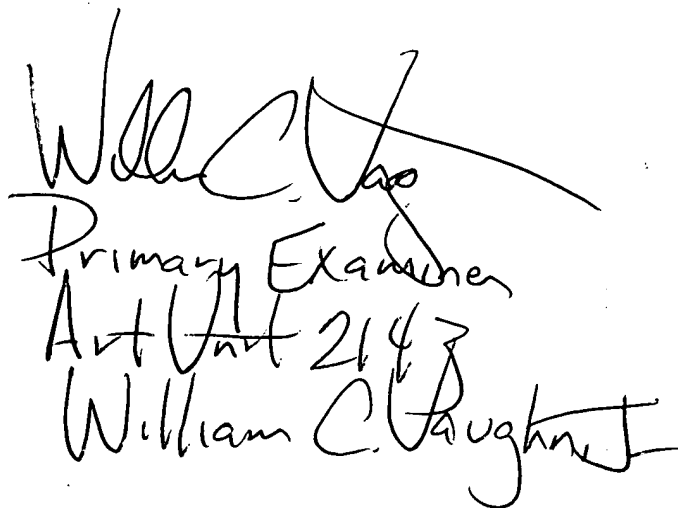 William C. Vaughn
Primary Examiner
Art Unit 2143
William C. Vaughn, Jr